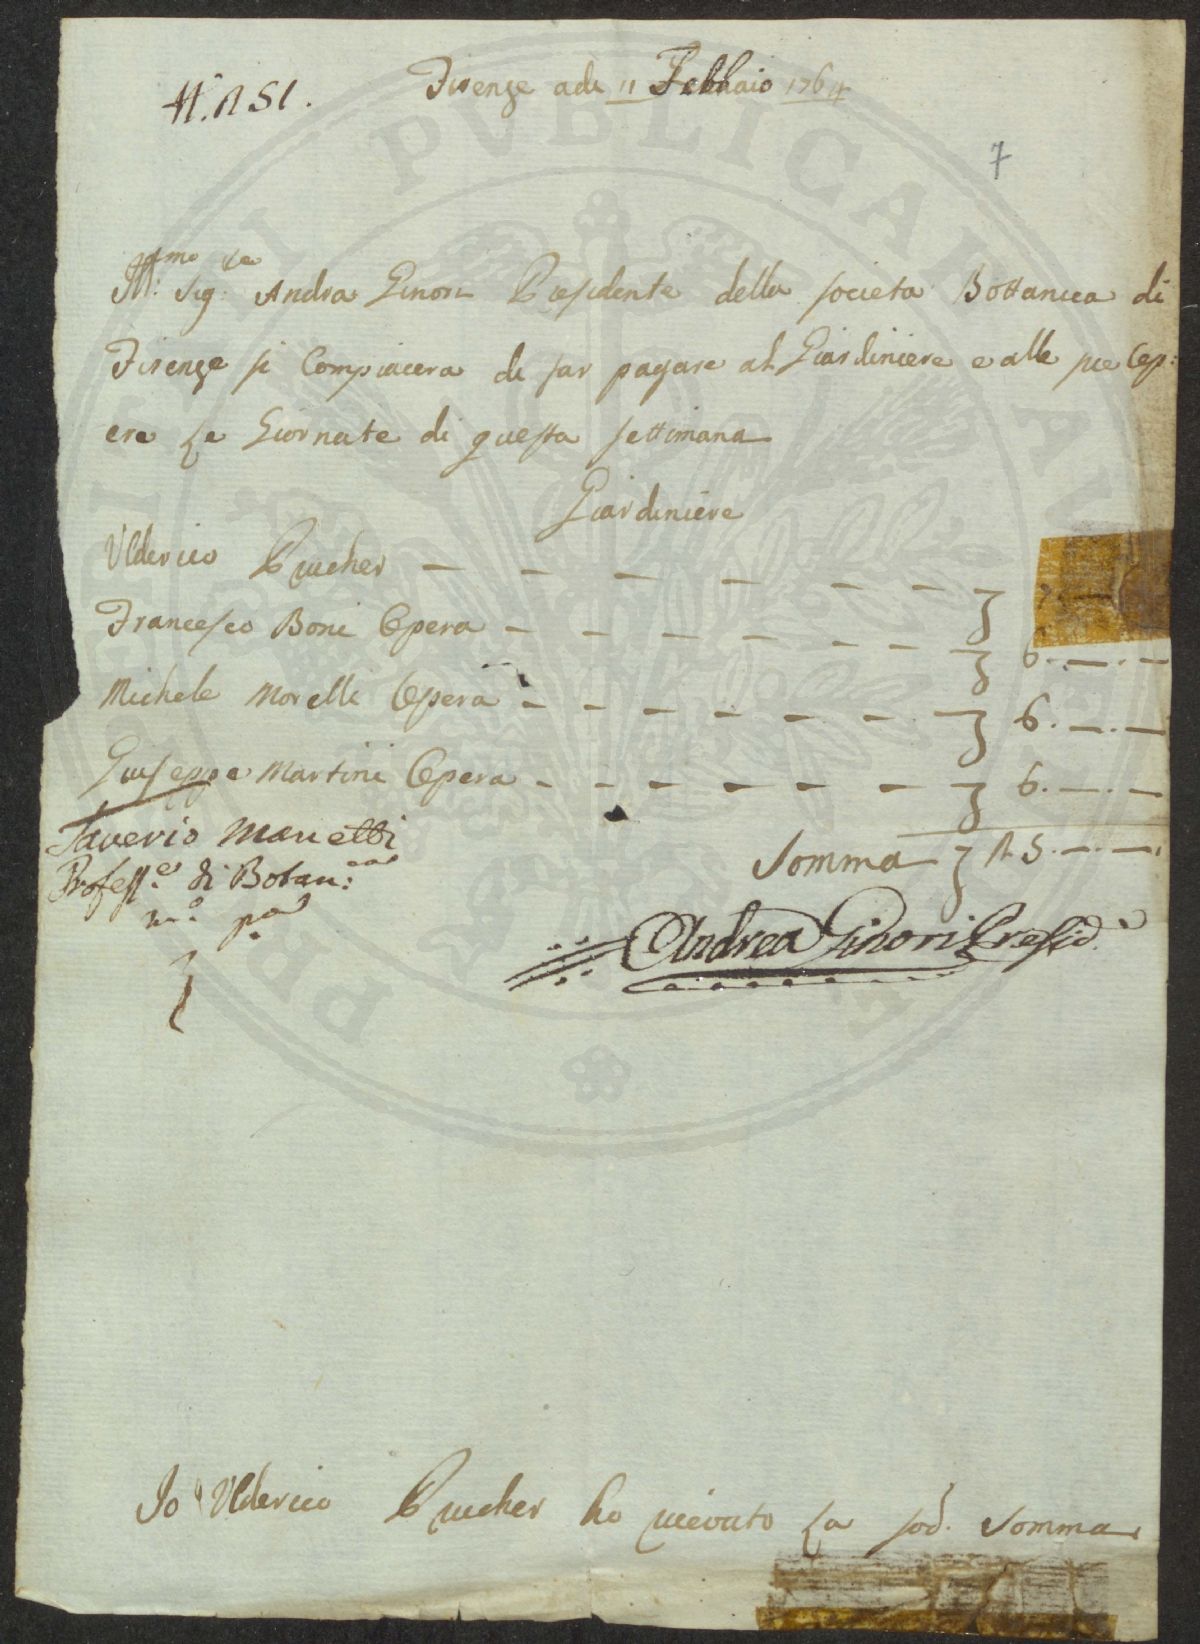 Firenze adi 11 Febbraio 1764
7
Ill:mo Sig:re Andrea Ginori Presidente della Societa Bottanica di
Firenze si Compiacera di far pagare al Giardiniere e alle sue Op:
ere le Giornate di questa settimana
Giardiniere
Ulderico Prucher — — — — — — —
Francesco Boni Opera — — — — — — 6. —. —
Michele Morelli Opera — — — — — — 6. —. —
Giuseppe Martini Opera — — — — — — 6. —. —
Somma 25. —. —
Saverio Manetti
Profess:e di Botan:ca
m:o p:a
Andrea Ginori Presid:e
Io Ulderico Prucher ho ricevuto la sod:a Somma
PUBLICAE